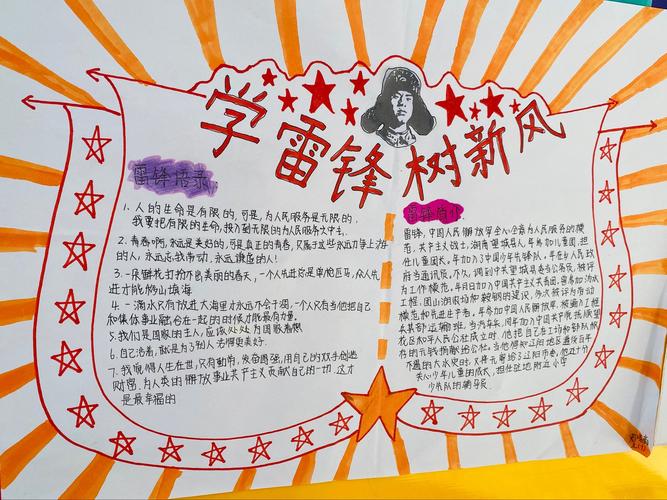 学雷锋 树新风
雷锋语录
1、人的生命是有限的,可是,为人民服务是无限的,
我要把有限的生命,投入到无限的为人民服务之中去。
2、青春啊,永远是美好的,可是真正的青春,只属于这些永远力争上游
的人,永远忘我劳动,永远谦虚的人!
3、一朵鲜花打扮不出美丽的春天,一个人先进总是单枪匹马,众人先
进才能移山填海
4、一滴水只有放进大海里才永远不会干涸,一个人只有当他把自己
和集体事业融合在一起的时候才能最有力量。
5、我们是国家的主人,应该处处为国家着想
6、自己活着,就是为了别人过得更美好。
7、我觉得人生在世,只有勤劳,发奋图强,用自己的双手创造
财富,为人类的解放事业共产主义贡献自己的一切,这才
是最幸福的
雷锋,中国人民解放军全心全意为人民服务的楷
模,共产主义战士,湖南望城县人,年参加儿童团,担
任儿童团长。年加入中国少年先锋队。年在乡人民政
府当通讯员,不久,调到中共望城县委当公务员,被评
为工作模范。年日加入中国共产主义共青团。曾参加沩水
工程、团山湖农场和鞍钢的建设,多次被评为劳动
模范和先进生产者。年参加中国人民解放军,被编入工程
兵某部运输班,
花区和平人民公社成立时,他把自己在工厂和部队积
存的
不遇的大水灾时,又将
关心少年儿童的成长,担任驻地附近小学
少先队的辅导员